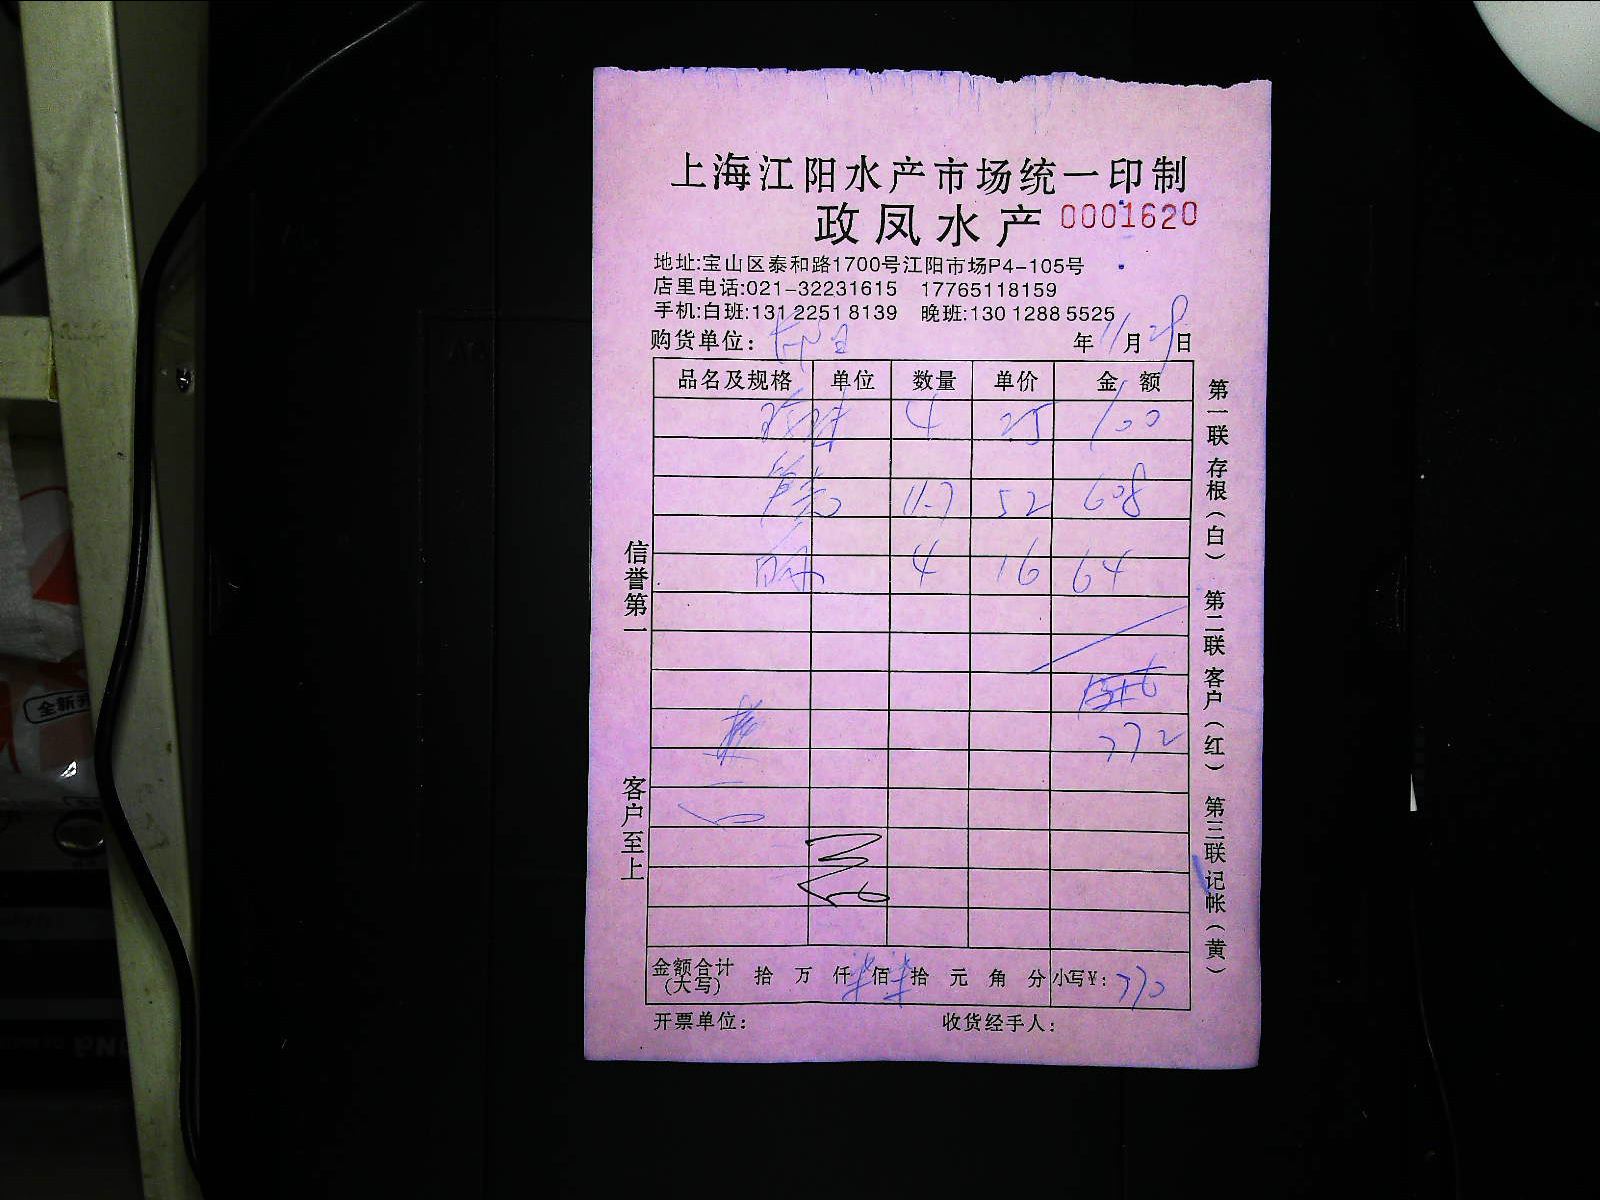 上海江阳水产市场统一印制
政凤水产 0001620
地址:宝山区泰和路1700号江阳市场P4-105号
店里电话:021-32231615 17765118159
手机:白班:131 2251 8139 晚班:130 1288 5525
购货单位: 年 11 月 29 日
品名及规格 单位 数量 单价 金额
4 25 100
11.7 52 608
4 16 64
772
金额合计(大写) 拾 万 仟 柒 佰 柒 拾 元 角 分 小写¥: 770
开票单位: 收货经手人:
信誉第一 客户至上
第一联 存根(白) 第二联 客户(红) 第三联 记帐(黄)
全新升